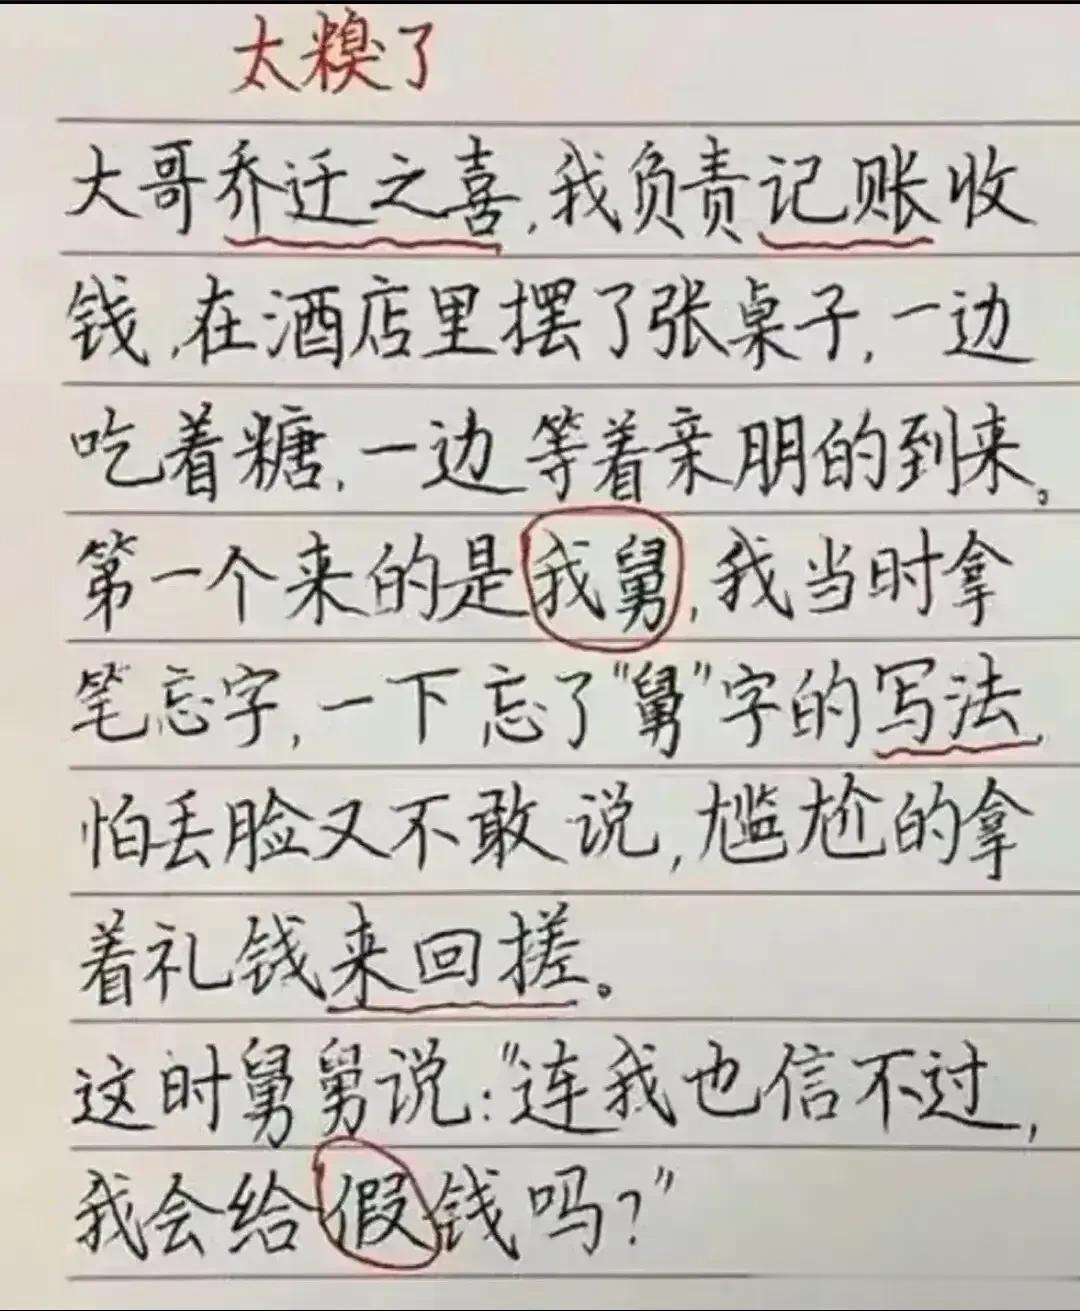 太糗了
大哥乔迁之喜,我负责记账收
钱,在酒店里摆了张桌子,一边
吃着糖,一边等着亲朋的到来。
第一个来的是我舅,我当时拿
笔忘字,一下忘了"舅"字的写法,
怕丢脸又不敢说,尴尬的拿
着礼钱来回搓。
这时舅舅说:"连我也信不过,
我会给假钱吗?"